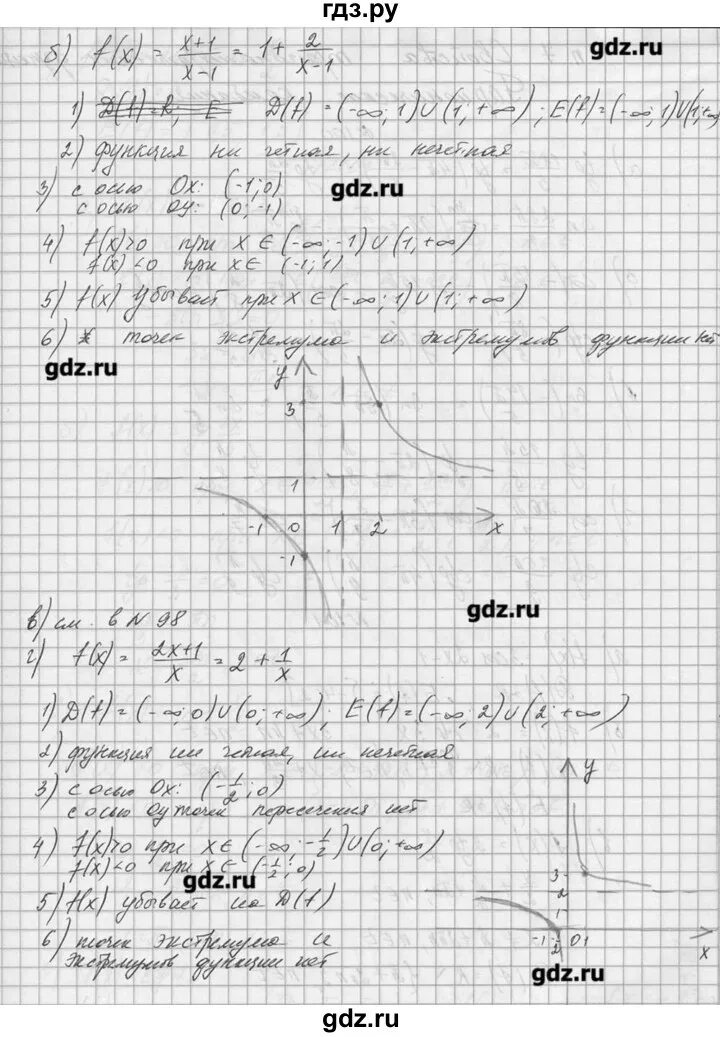 гдз.ру
б) f(x) = x+1/x-1 = 1 + 2/x-1
gdz.ru
1) D(f)=R; E D(f) = (-∞; 1)∪(1; +∞); E(f)=(-∞; 1)∪(1; +∞)
2) функция ни четная, ни нечетная
3) с осью Ox: (-1; 0)
gdz.ru
с осью Oy: (0; -1)
4) f(x)>0 при x∈(-∞; -1)∪(1; +∞)
f(x)<0 при x∈(-1; 1)
5) f(x) убывает при x∈(-∞; 1)∪(1; +∞)
6) точек экстремума и экстремумов функции нет
gdz.ru
y
3
1
-1 0 1 2 x
-1
gdz.ru
в) см. в N 98
г) f(x) = 2x+1/x = 2 + 1/x
1) D(f) = (-∞; 0)∪(0; +∞); E(f)=(-∞; 2)∪(2; +∞)
2) функция ни четная, ни нечетная
3) с осью Ox: (-1/2; 0)
с осью Oy точек пересечения нет
4) f(x)>0 при x∈(-∞; -1/2]∪(0; +∞)
f(x)<0 при x∈(-1/2; 0)
gdz.ru
5) f(x) убывает на D(f)
6) точек экстремума и
экстремумов функции нет
y
3
2
1
-1 0 1
x
gdz.ru
gdz.ru